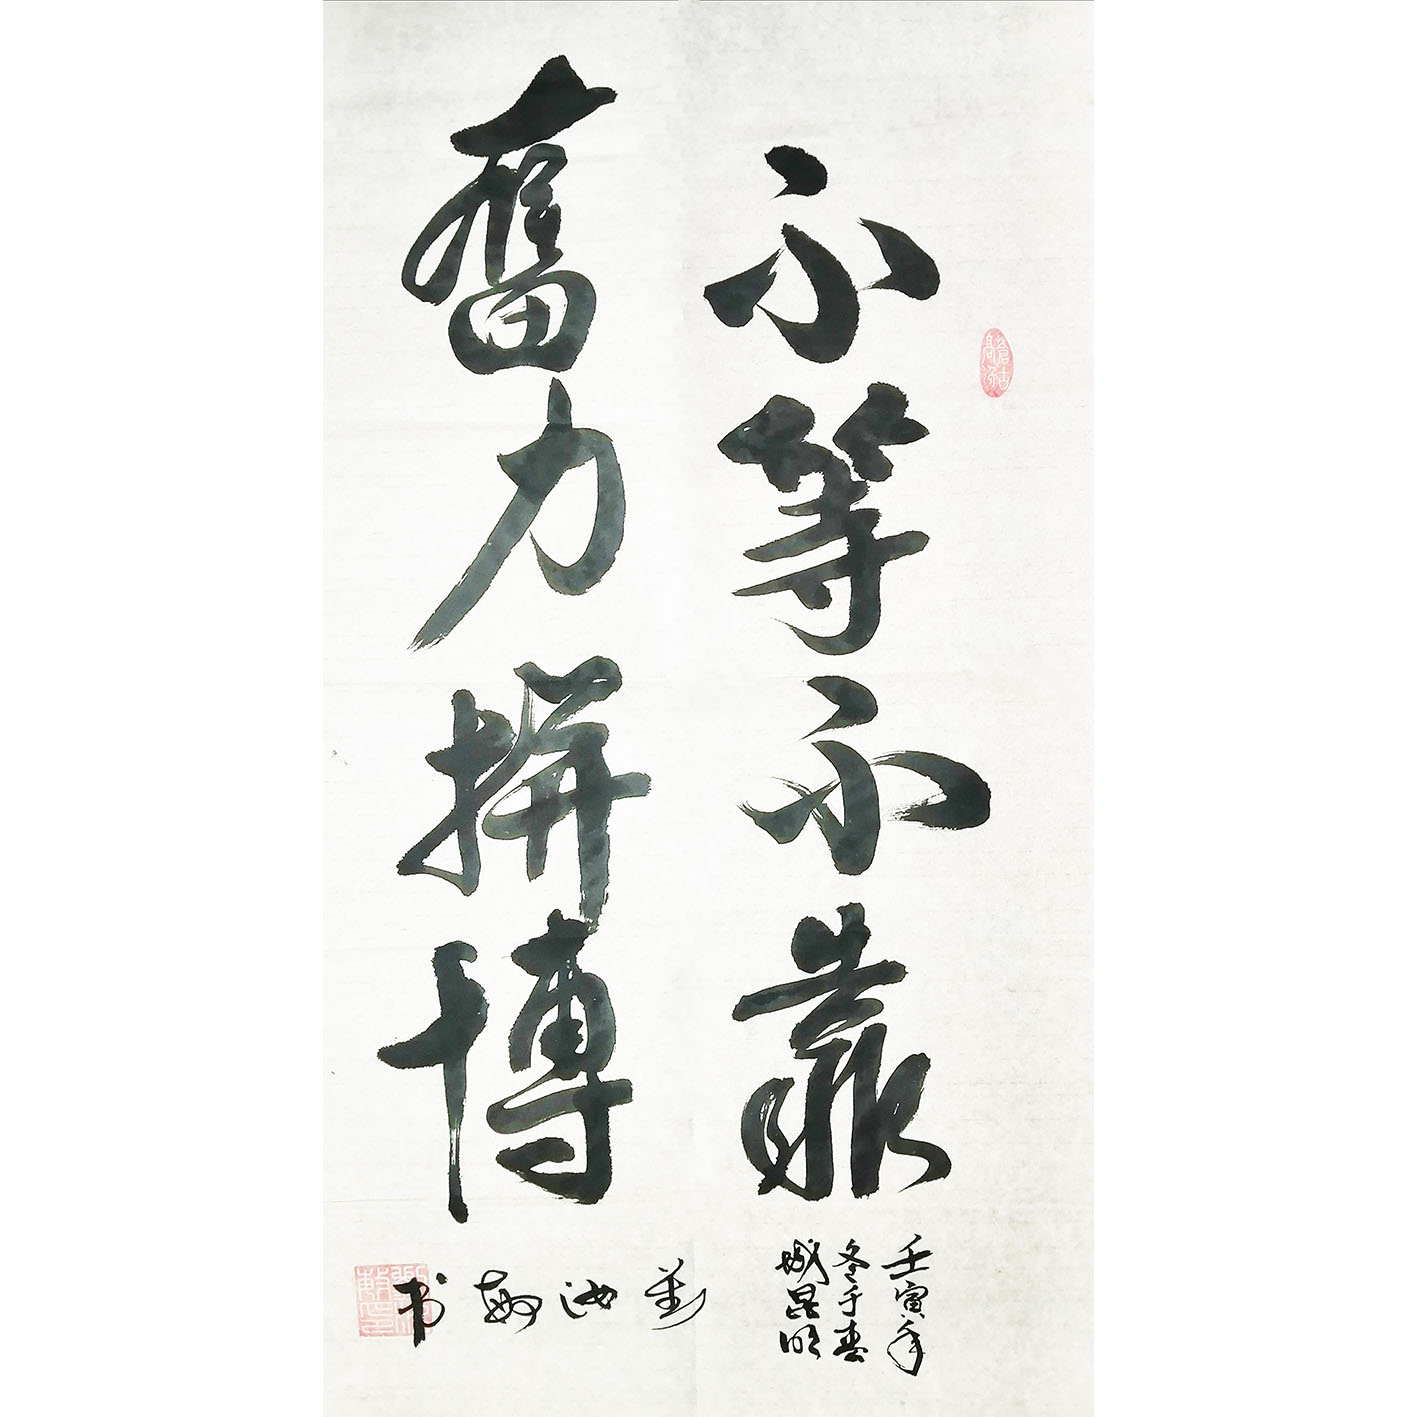 不等不靠
奮力拼博
壬寅年
冬于春
城昆明
劉池敏书